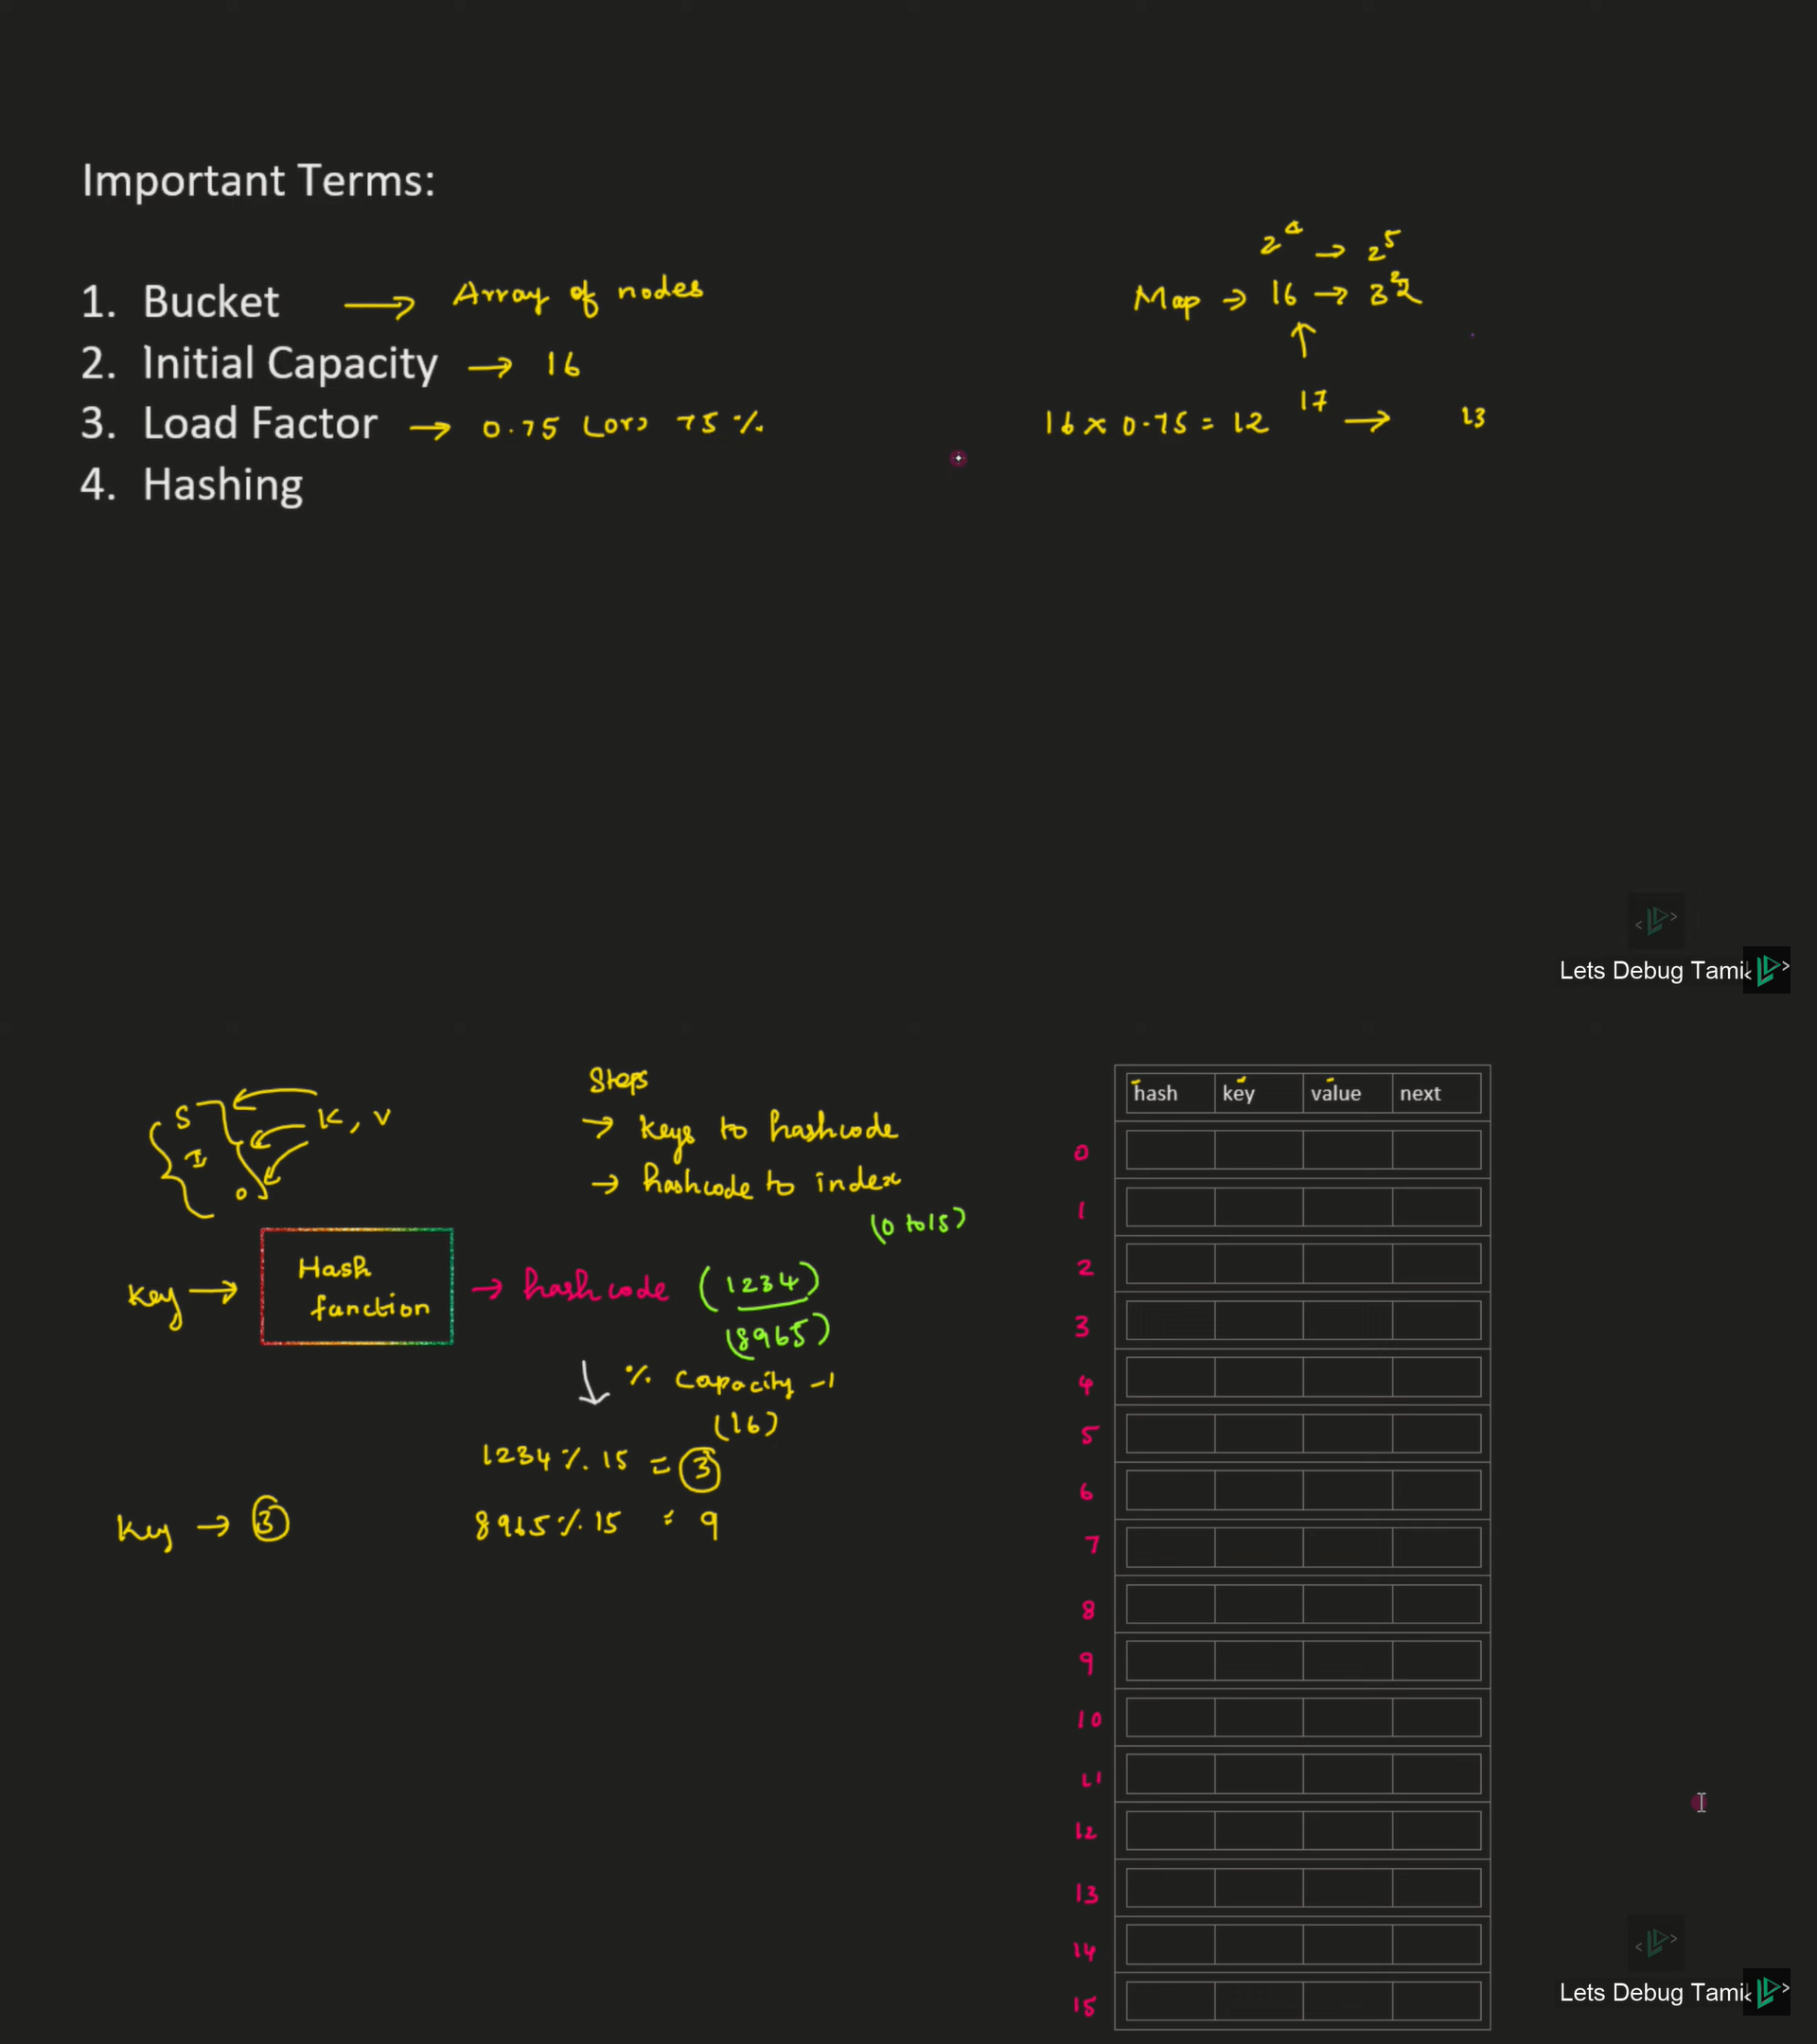 Important Terms:
1. Bucket → Array of nodes
2. Initial Capacity → 16
3. Load Factor → 0.75 (or) 75 %
4. Hashing
2⁴ → 2⁵
Map → 16 → 32
↑
16 x 0.75 = 12 17 → 13
Lets Debug Tamil
S
I
O
K, V
Steps
→ keys to hashcode
→ hashcode to index
(0 to 15)
Key →
Hash
function
→ hashcode (1234)
(8965)
↓ % Capacity -1
(16)
1234 % 15 = 3
Key → 3
8965 % 15 = 9
hash key value next
0
1
2
3
4
5
6
7
8
9
10
11
12
13
14
15
Lets Debug Tamil